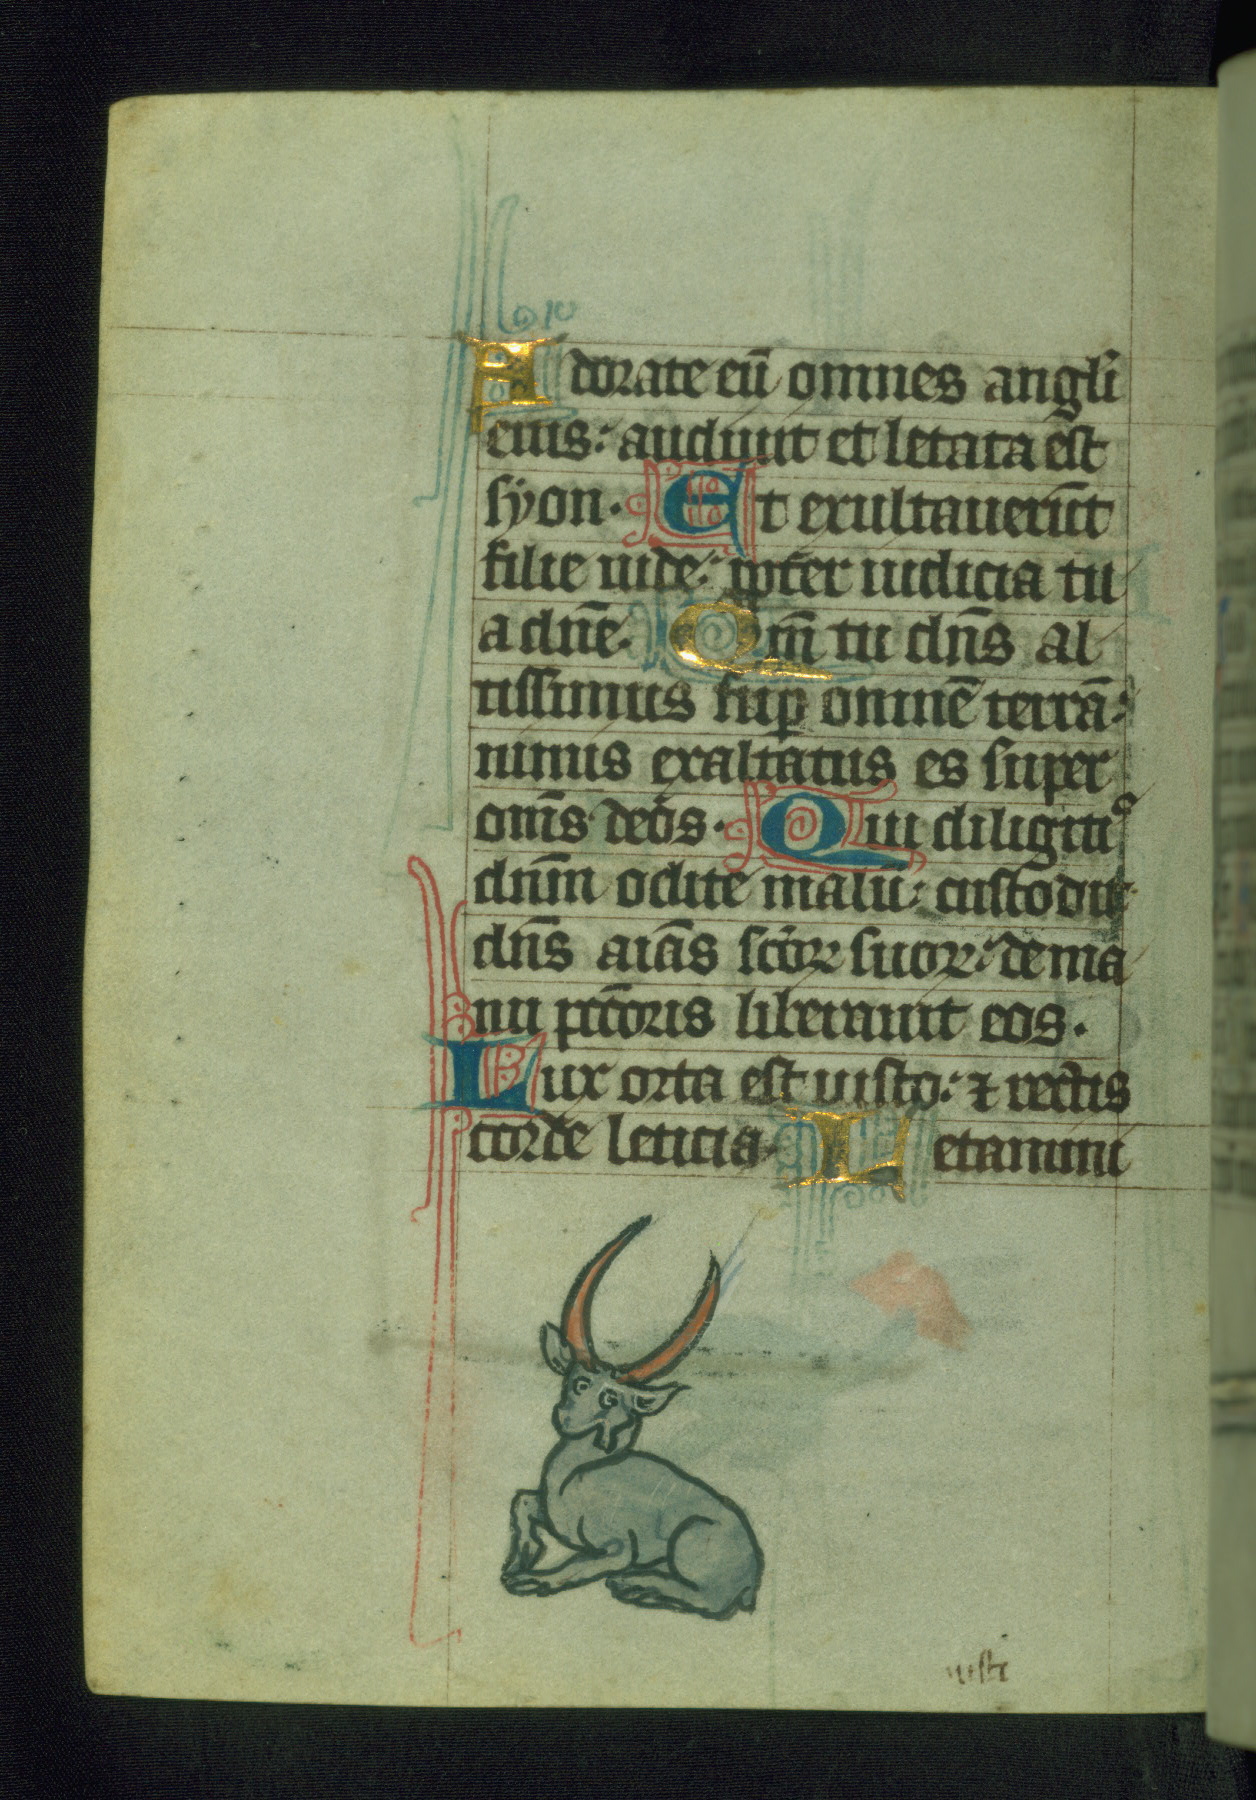 Adorate eū omnes angl̄i
eius: audiuit et letata est
syon. Et exultauerūt
filie iude: ꝓpter iudicia tu
a dn̄e. Qm̄ tu dn̄s al
tissimus sup̲ omnē terrā:
nimis exaltatus es super
om̄s deos. Qui diligitis
dnm̄ odite malū: custodit
dn̄s aīas scōꝝ suoꝝ: de ma
nu pctōris liberauit eos.
Lux orta est iusto: ⁊ rectis
corde leticia. Letamini
iusti